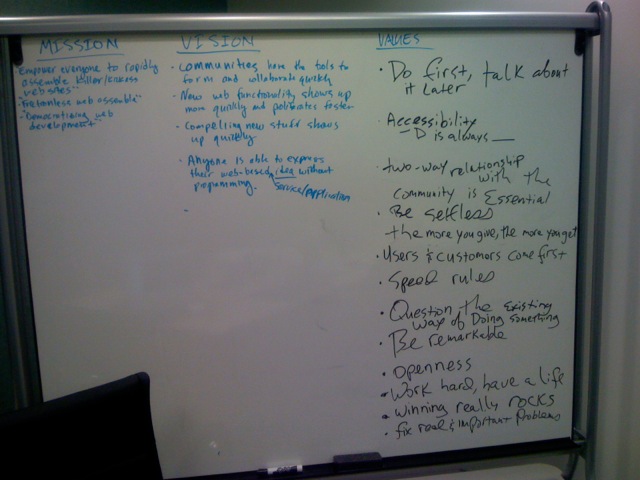 MISSION
• Empower everyone to rapidly
assemble killer/kickass
web sites"
"Frictionless web assemble"
"Democratizing web
development"
VISION
• Communities have the tools to
form and collaborate quickly
• New web functionality shows up
more quickly and proliferates faster
• Compelling new stuff shows
up quickly
• Anyone is able to express
their web-based idea without
programming. Service/Application
-
VALUES
• Do first, talk about
it later
• Accessibility
- D is always __
• two-way relationship
with the
community is Essential
• Be selfless
the more you give, the more you get
• Users & customers come first
• Speed rules
• Question the existing
way of Doing something
• Be remarkable
• openness
• Work hard, have a life
• winning really rocks
• fix real & important problems